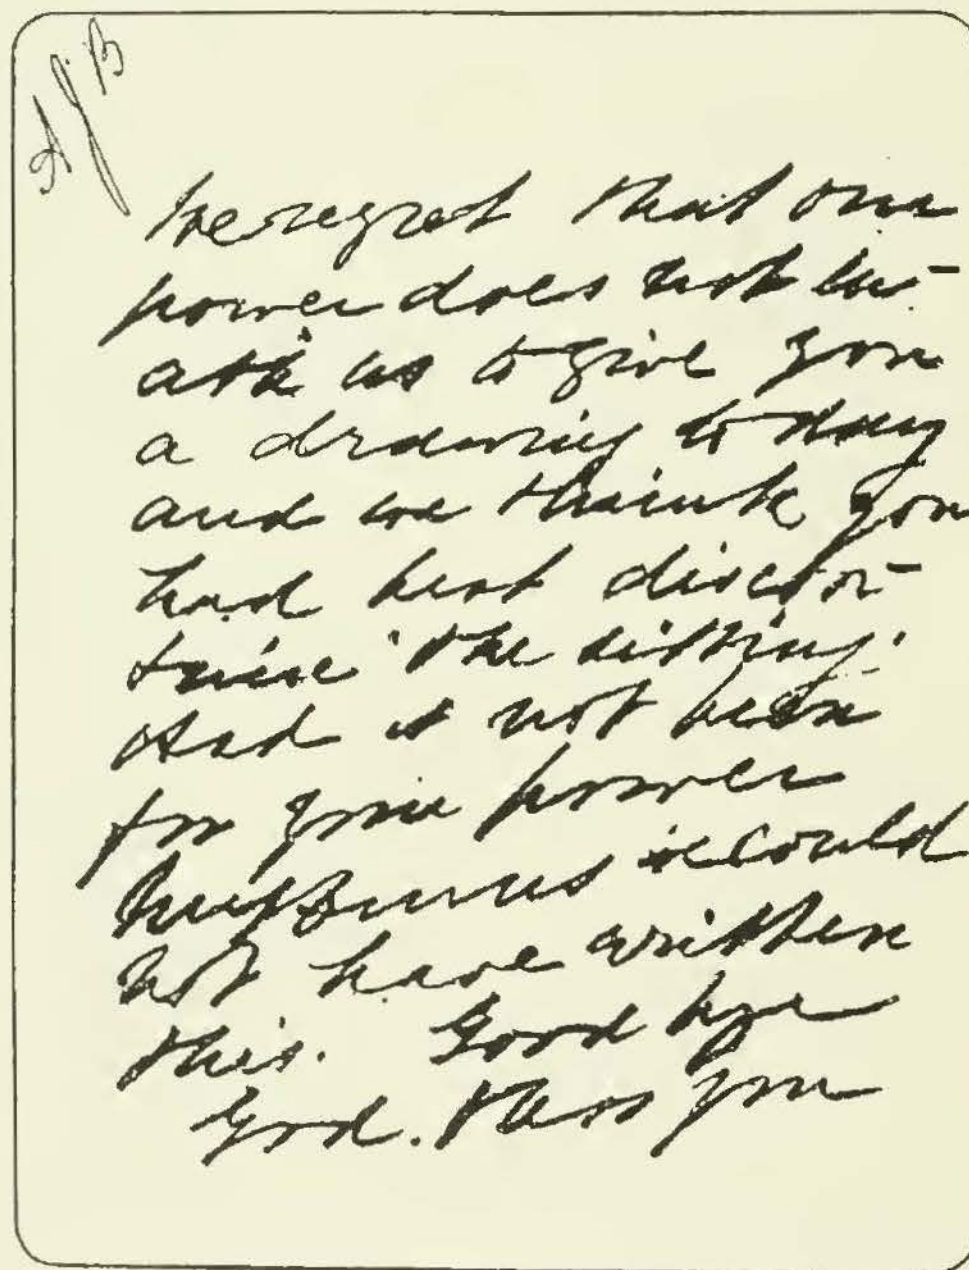 AJB
We regret that our
power does not en-
able us to give you
a drawing to day
and we think you
had best discon-
tinue the sitting.
Had it not been
for your power
Burns we could
not have written
this. Good bye
God bless you